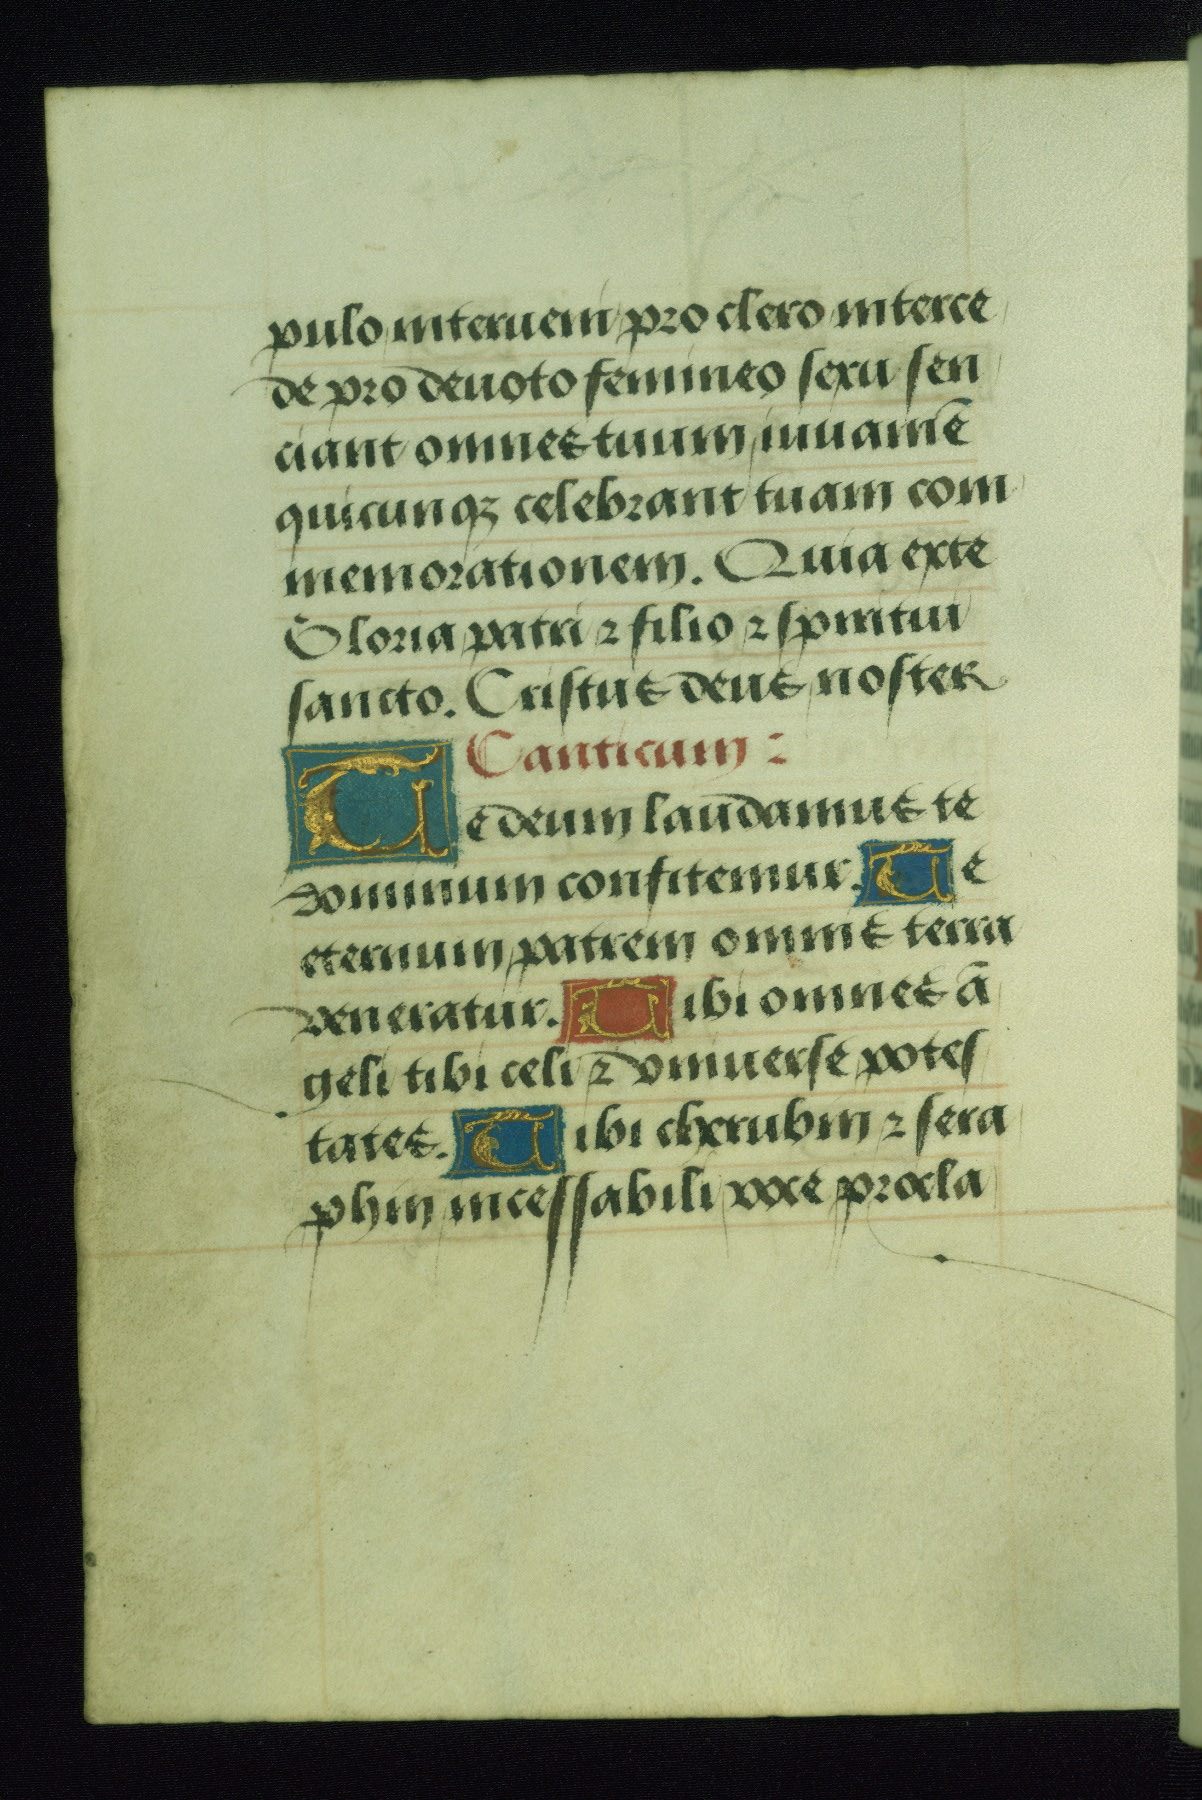 pulo interueni pro clero interce
de pro deuoto femineo sexu sen
ciant omnes tuum iuuamē
quicunqꝫ celebrant tuam com
memorationem. Quia exte
Gloria patri ⁊ filio ⁊ spiritui
sancto. Cristus deus noster
Canticum :
Te deum laudamus te
dominum confitemur. Te
eternum patrem omnis terra
veneratur. Tibi omnes ā
geli tibi celi ⁊ vniuerse potes
tates. Tibi cherubin ⁊ sera
phin incessabili voce procla